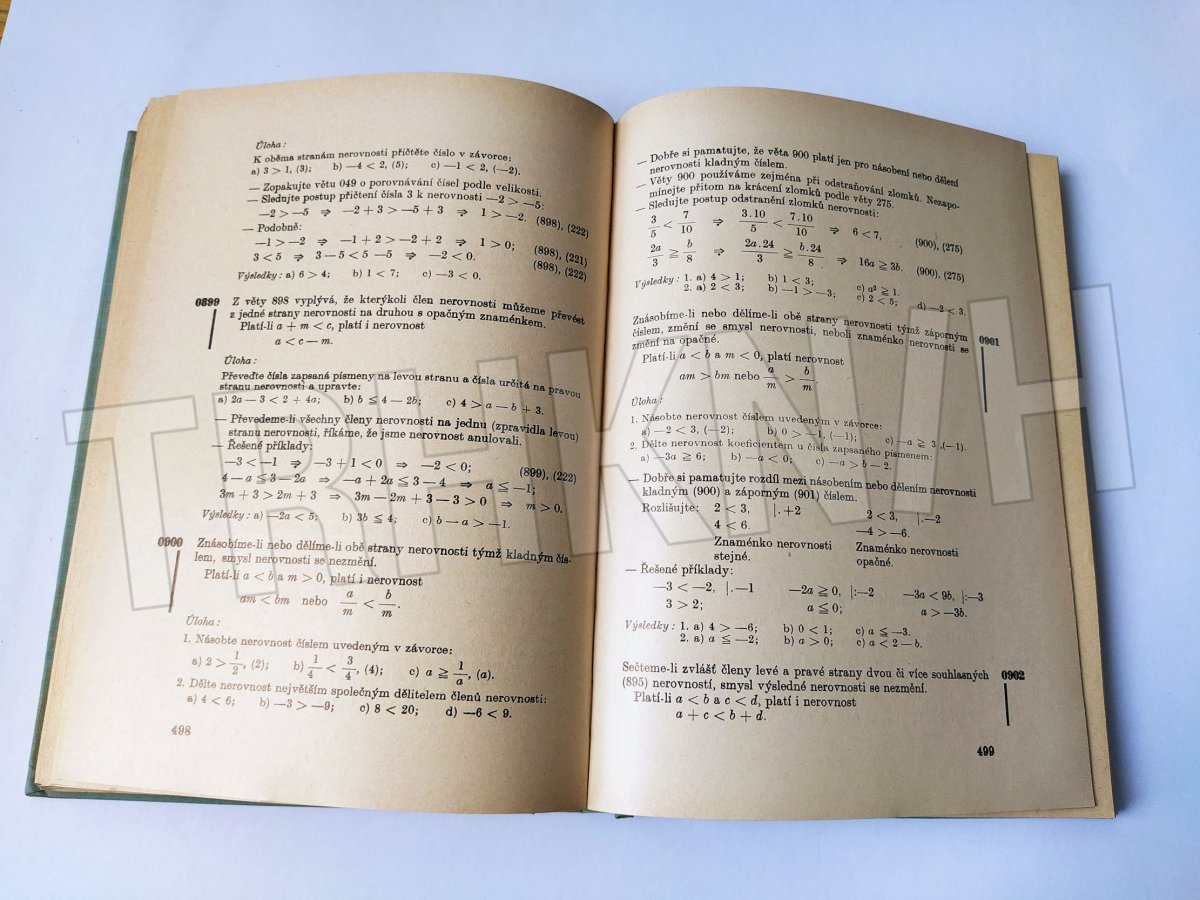 Úloha:
K oběma stranám nerovnosti přičtěte číslo v závorce:
a) 3 > 1, (3);   b) —4 < 2, (5);   c) —1 < 2, (—2).
— Zopakujte větu 049 o porovnávání čísel podle velikosti.
— Sledujte postup přičtení čísla 3 k nerovnosti —2 > —5:
—2 > —5 ⇒ —2 + 3 > —5 + 3 ⇒ 1 > —2. (898), (222)
— Podobně:
—1 > —2 ⇒ —1 + 2 > —2 + 2 ⇒ 1 > 0; (898), (221)
3 < 5 ⇒ 3 — 5 < 5 — 5 ⇒ —2 < 0. (898), (222)
Výsledky: a) 6 > 4;   b) 1 < 7;   c) —3 < 0.
0899 Z věty 898 vyplývá, že kterýkoli člen nerovnosti můžeme převést
z jedné strany nerovnosti na druhou s opačným znaménkem.
Platí-li a + m < c, platí i nerovnost
a < c — m.
Úloha:
Převeďte čísla zapsaná písmeny na levou stranu a čísla určitá na pravou
stranu nerovnosti a upravte:
a) 2a — 3 < 2 + 4a;   b) b ≦ 4 — 2b;   c) 4 > a — b + 3.
— Převedeme-li všechny členy nerovnosti na jednu (zpravidla levou)
stranu nerovnosti, říkáme, že jsme nerovnost anulovali.
— Řešené příklady:
—3 < —1 ⇒ —3 + 1 < 0 ⇒ —2 < 0; (899), (222)
4 — a ≦ 3 — 2a ⇒ —a + 2a ≦ 3 — 4 ⇒ a ≦ —1;
3m + 3 > 2m + 3 ⇒ 3m — 2m + 3 — 3 > 0 ⇒ m > 0.
Výsledky: a) —2a < 5;   b) 3b ≦ 4;   c) b — a > —1.
0900 Znásobíme-li nebo dělíme-li obě strany nerovnosti týmž kladným čís-
lem, smysl nerovnosti se nezmění.
Platí-li a < b a m > 0, platí i nerovnost
am < bm nebo a/m < b/m.
Úloha:
1. Násobte nerovnost číslem uvedeným v závorce:
a) 2 > 1/2, (2);   b) 1/4 < 3/4, (4);   c) a ≧ 1/a, (a).
2. Dělte nerovnost největším společným dělitelem členů nerovnosti:
a) 4 < 6;   b) —3 > —9;   c) 8 < 20;   d) —6 < 9.
498
— Dobře si pamatujte, že věta 900 platí jen pro násobení nebo dělení
nerovnosti kladným číslem.
— Věty 900 používáme zejména při odstraňování zlomků. Nezapo-
mínejte přitom na krácení zlomků podle věty 275.
— Sledujte postup odstranění zlomků nerovnosti:
3/5 < 7/10 ⇒ 3.10/5 < 7.10/10 ⇒ 6 < 7, (900), (275)
2a/3 ≧ b/8 ⇒ 2a.24/3 ≧ b.24/8 ⇒ 16a ≧ 3b. (900), (275)
Výsledky: 1. a) 4 > 1;   b) 1 < 3;   c) a² ≧ 1.
2. a) 2 < 3;   b) —1 > —3;   c) 2 < 5;   d) —2 < 3.
Znásobíme-li nebo dělíme-li obě strany nerovnosti týmž záporným 0901
číslem, změní se smysl nerovnosti, neboli znaménko nerovnosti se
změní na opačné.
Platí-li a < b a m < 0, platí nerovnost
am > bm nebo a/m > b/m.
Úloha:
1. Násobte nerovnost číslem uvedeným v závorce:
a) —2 < 3, (—2);   b) 0 > —1, (—1);   c) —a ≧ 3 ,(—1).
2. Dělte nerovnost koeficientem u čísla zapsaného písmenem:
a) —3a ≧ 6;   b) —a < 0;   c) —a > b — 2.
— Dobře si pamatujte rozdíl mezi násobením nebo dělením nerovnosti
kladným (900) a záporným (901) číslem.
Rozlišujte: 2 < 3, |.+2   2 < 3, |.—2
4 < 6.   —4 > —6.
Znaménko nerovnosti   Znaménko nerovnosti
stejné.   opačné.
— Řešené příklady:
—3 < —2, |.—1   —2a ≧ 0, |:—2   —3a < 9b, |:—3
3 > 2;   a ≦ 0;   a > —3b.
Výsledky: 1. a) 4 > —6;   b) 0 < 1;   c) a ≦ —3.
2. a) a ≦ —2;   b) a > 0;   c) a < 2 — b.
Sečteme-li zvlášť členy levé a pravé strany dvou či více souhlasných 0902
(895) nerovností, smysl výsledné nerovnosti se nezmění.
Platí-li a < b a c < d, platí i nerovnost
a + c < b + d.
499
TRHKNIH